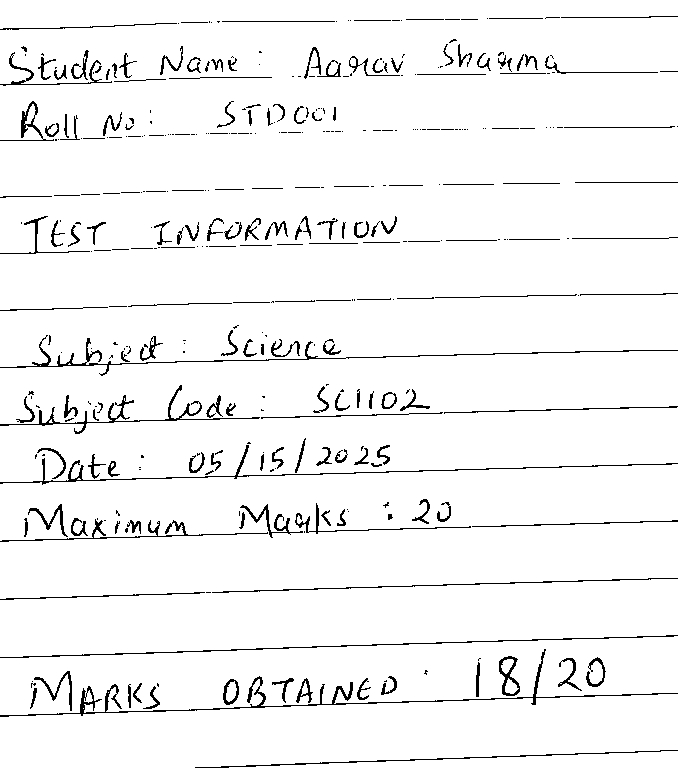 Student Name: Aarav Sharma
Roll No: STD001
TEST INFORMATION
Subject: Science
Subject Code: SCI102
Date: 05/15/2025
Maximum Marks: 20
MARKS OBTAINED: 18/20